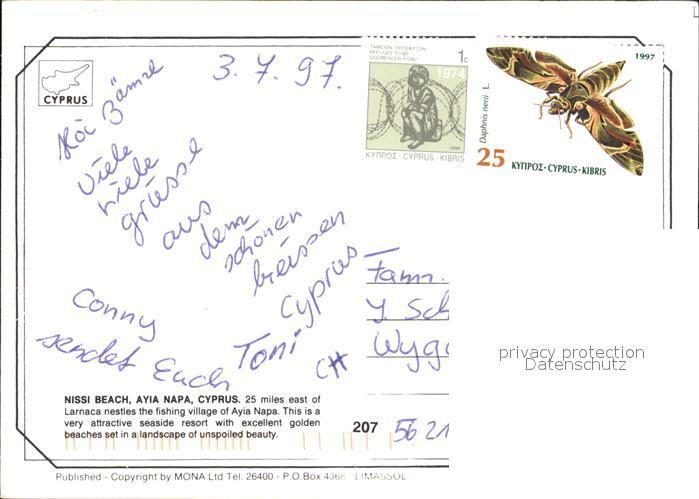 3.7.97.
CYPRUS
Hoi Zäme
Viele
viele
grüsse
aus
dem
schönen
heissen
Cyprus
Conny
sendet Euch Toni
ΤΑΜΕΙΟΝ ΠΡΟΣΦΥΓΩΝ
REFUGEE FUND
GÖÇMENLER FONU
1c
1974
ΚΥΠΡΟΣ·CYPRUS·KIBRIS
1997
Daphnis nerii L.
25 ΚΥΠΡΟΣ·CYPRUS·KIBRIS
Fam.
Y. Sch
Wyg
CH
5621
privacy protection
Datenschutz
NISSI BEACH, AYIA NAPA, CYPRUS. 25 miles east of
Larnaca nestles the fishing village of Ayia Napa. This is a
very attractive seaside resort with excellent golden
beaches set in a landscape of unspoiled beauty.
207
Published - Copyright by MONA Ltd Tel. 26400 - P.O.Box 4368 LIMASSOL